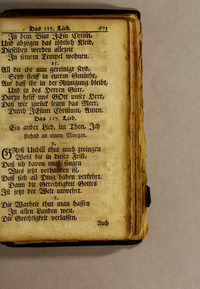 Das 117. Lied. 675
In dem Blut JEsu Christi,
Und abzogen das tödtlich Kleid,
Dieselben werden allezeit
In seinem Tempel wohnen.
All die ihr nun gereinigt seyd,
Seyd steiff in eurem Gmüthe,
Auf daß ihr in der Reinigung bleibt,
Und in des Herren Güte.
Darzu helff uns GOtt unser Herr,
Daß wir zurück legen das Meer,
Durch JEsum Christum, Amen.
Das 117. Lied.
Ein ander Lied, im Thon, Ich
stuhnd an einem Morgen.
1.
GRoß Unbill thut mich zwingen
Wohl hie in dieser Frist,
Daß ich davon muß singen
Wies jetzt vorhanden ist,
Daß sich all Ding haben verkehrt,
Dann die Gerechtigkeit Gottes
Ist jetzt der Welt unwehrt.
2.
Die Warheit thut man hassen
In allen Landen weit,
Die Grechtigkeit verlassen,
Auch